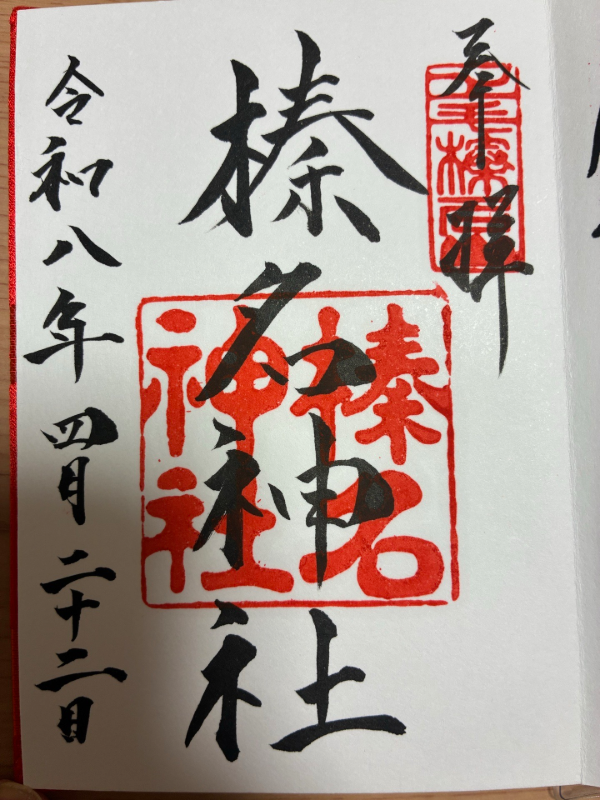 奉拝
榛名神社
榛名
神社
令和八年四月二十二日